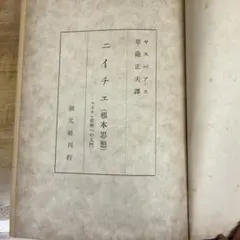 ヤスパアス
草薙正夫譯
ニイチェ（根本思想）
創元社刊行